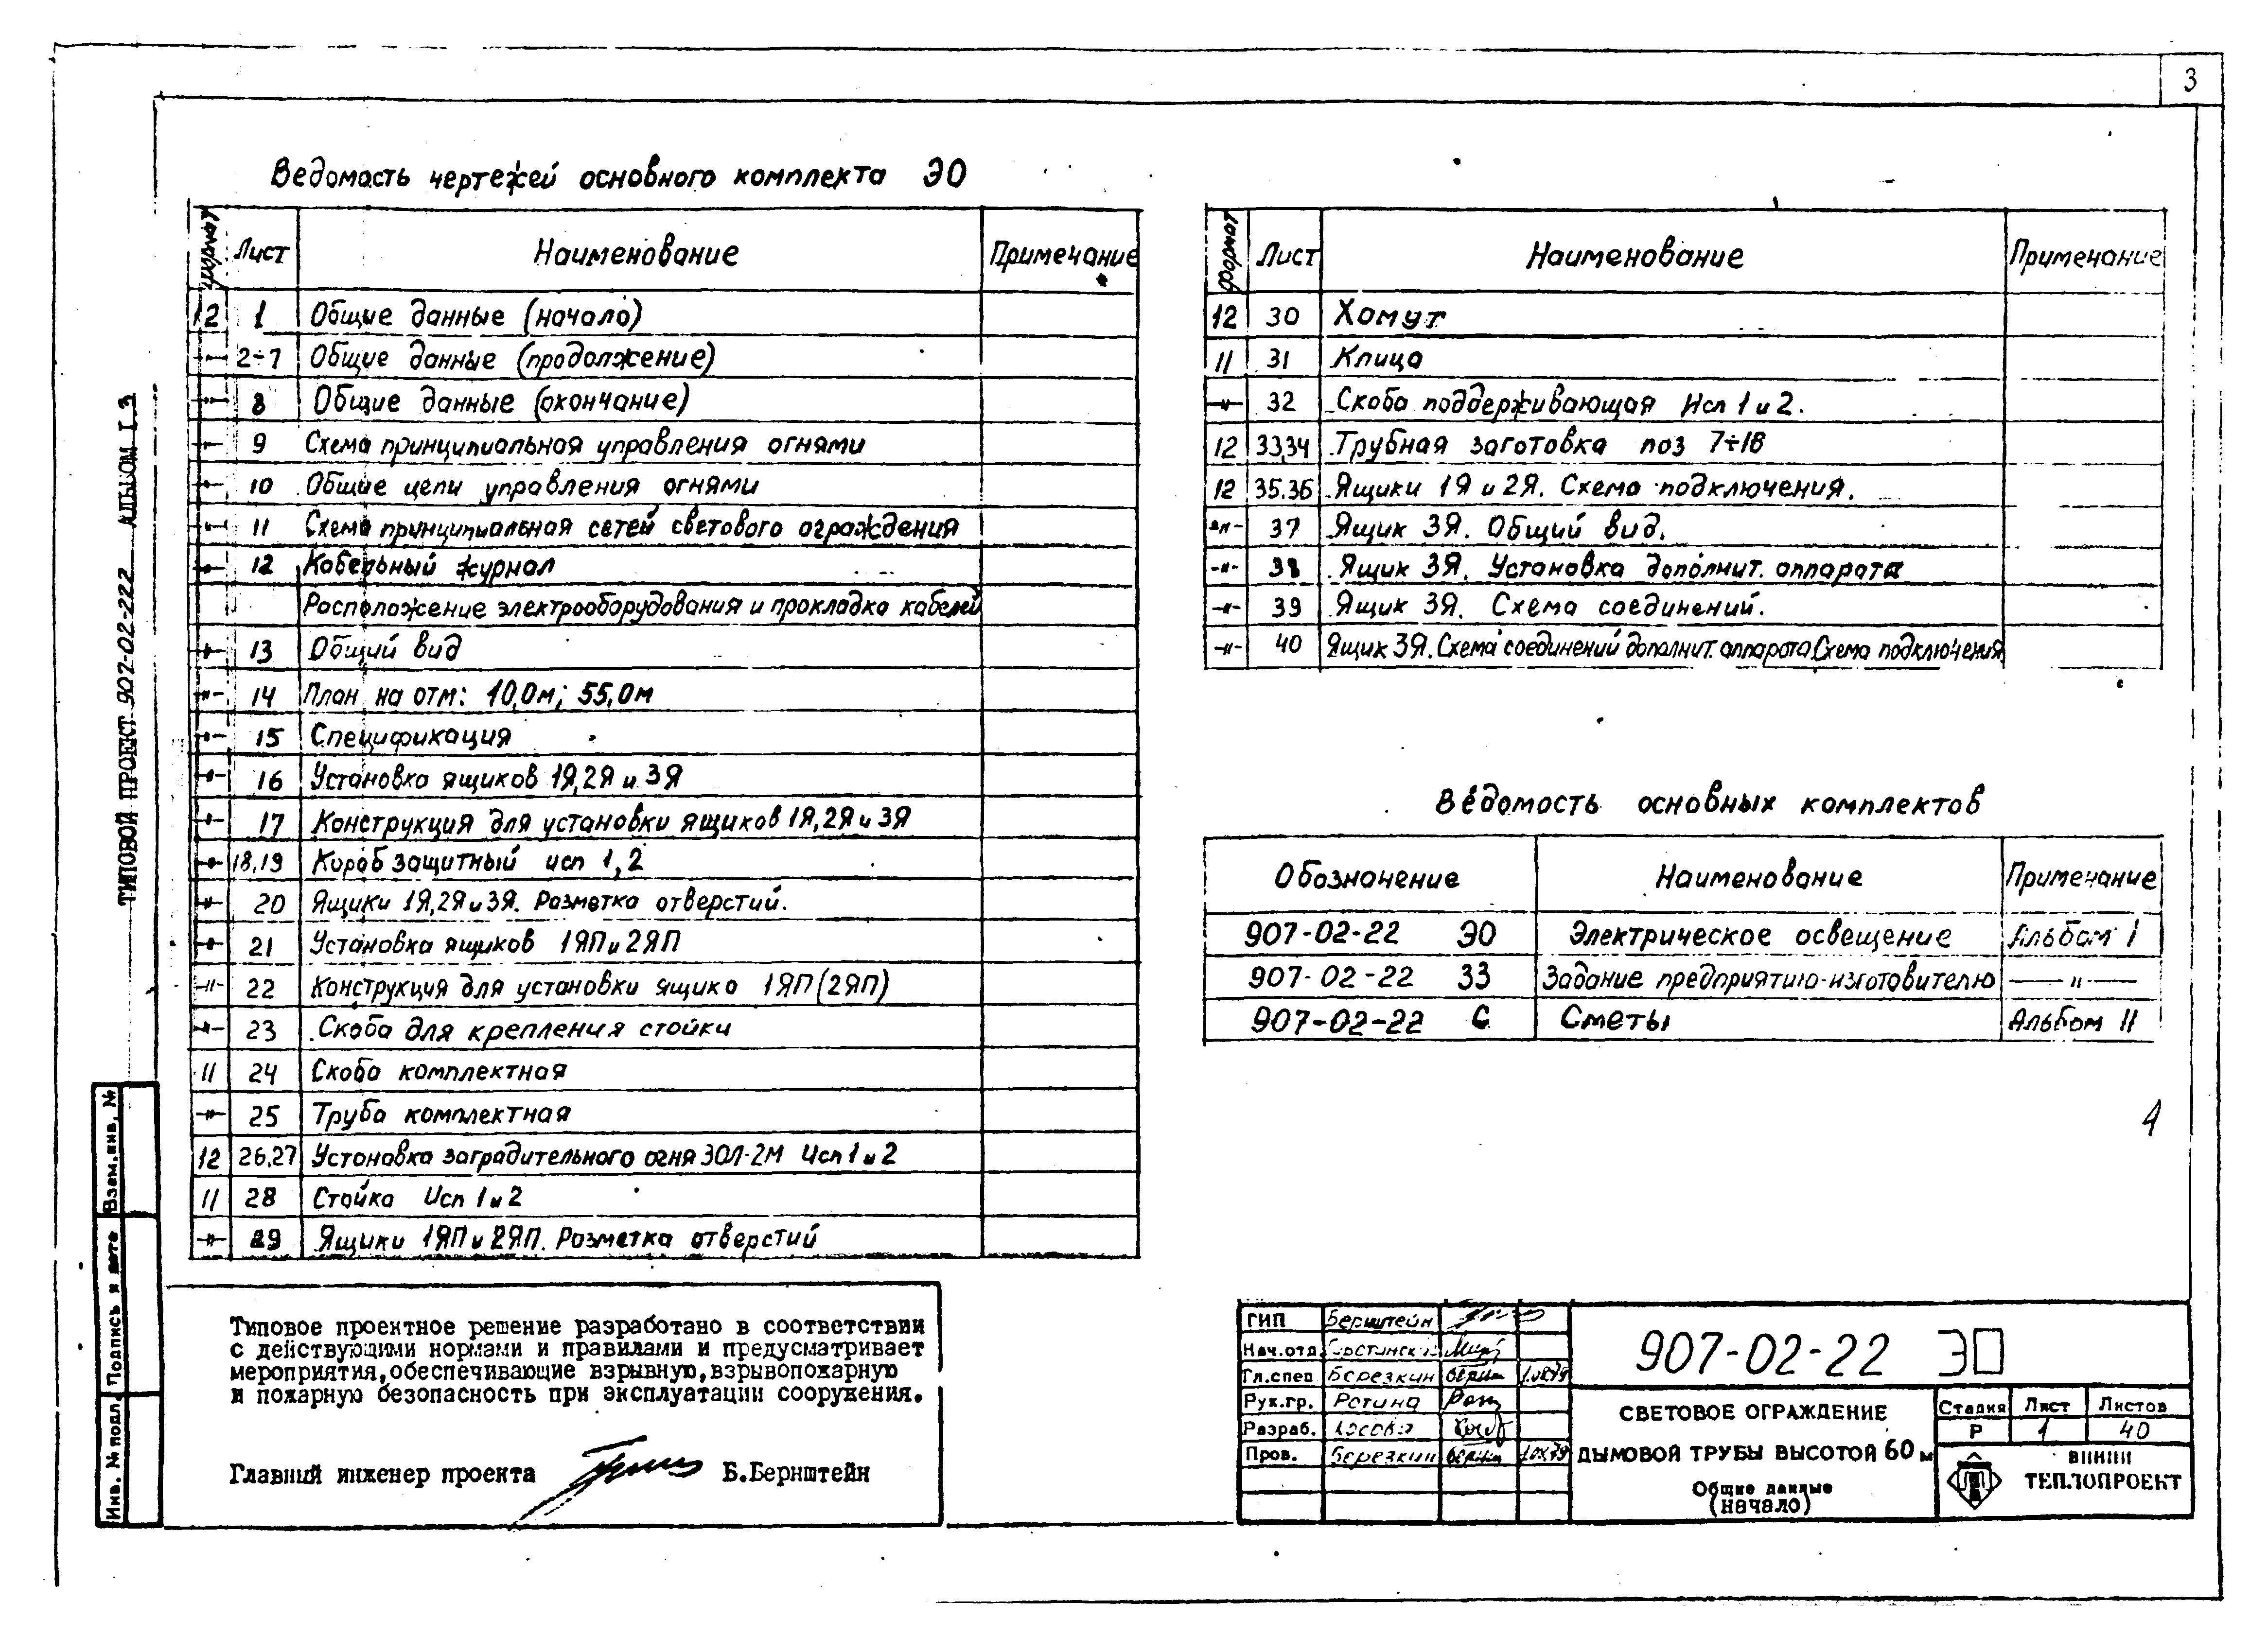 3
Ведомость чертежей основного комплекта ЭО
Формат Лист Наименование Примечание
12 1 Общие данные (начало)
-"- 2÷7 Общие данные (продолжение)
-"- 8 Общие данные (окончание)
-"- 9 Схема принципиальная управления огнями
-"- 10 Общие цепи управления огнями
-"- 11 Схема принципиальная сетей светового ограждения
-"- 12 Кабельный журнал
Расположение электрооборудования и прокладка кабелей
-"- 13 Общий вид
-"- 14 План на отм: 10,0м; 55,0м
-"- 15 Спецификация
-"- 16 Установка ящиков 1Я,2Я и 3Я
-"- 17 Конструкция для установки ящиков 1Я,2Я и 3Я
-"- 18,19 Короб защитный исп 1,2
-"- 20 Ящики 1Я,2Я и 3Я. Разметка отверстий.
-"- 21 Установка ящиков 1ЯП и 2ЯП
-"- 22 Конструкция для установки ящика 1ЯП (2ЯП)
-"- 23 Скоба для крепления стойки
11 24 Скоба комплектная
-"- 25 Труба комплектная
12 26,27 Установка заградительного огня ЗОЛ-2М Исп 1 и 2
11 28 Стойка Исп 1 и 2
-"- 29 Ящики 1ЯП и 2ЯП. Разметка отверстий
Формат Лист Наименование Примечание
12 30 Хомут
11 31 Клица
-"- 32 Скоба поддерживающая Исп 1 и 2.
12 33,34 Трубная заготовка поз 7÷18
12 35.36 Ящики 1Я и 2Я. Схема подключения.
-"- 37 Ящик 3Я. Общий вид.
-"- 38 Ящик 3Я. Установка дополнит. аппарата
-"- 39 Ящик 3Я. Схема соединений.
-"- 40 Ящик 3Я. Схема соединений дополнит. аппарата. Схема подключения
Ведомость основных комплектов
Обозначение Наименование Примечание
907-02-22 ЭО Электрическое освещение Альбом I
907-02-22 ЗЗ Задание предприятию-изготовителю -"-
907-02-22 С Сметы Альбом II
4
ТИПОВОЙ ПРОЕКТ 907-02-222 АЛЬБОМ I.3
Взам.инв.№
Подпись и дата
Инв. № подл.
Типовое проектное решение разработано в соответствии
с действующими нормами и правилами и предусматривает
мероприятия, обеспечивающие взрывную, взрывопожарную
и пожарную безопасность при эксплуатации сооружения.
Главный инженер проекта Б.Бернштейн
ГИП Бернштейн
Нач.отд.
Гл.спец Березкин 1.08.79
Рук.гр. Ратина
Разраб.
Пров. Березкин
907-02-22 ЭО
СВЕТОВОЕ ОГРАЖДЕНИЕ
ДЫМОВОЙ ТРУБЫ ВЫСОТОЙ 60 м
Общие данные
(начало)
Стадия Лист Листов
Р 1 40
ВНИПИ
ТЕПЛОПРОЕКТ